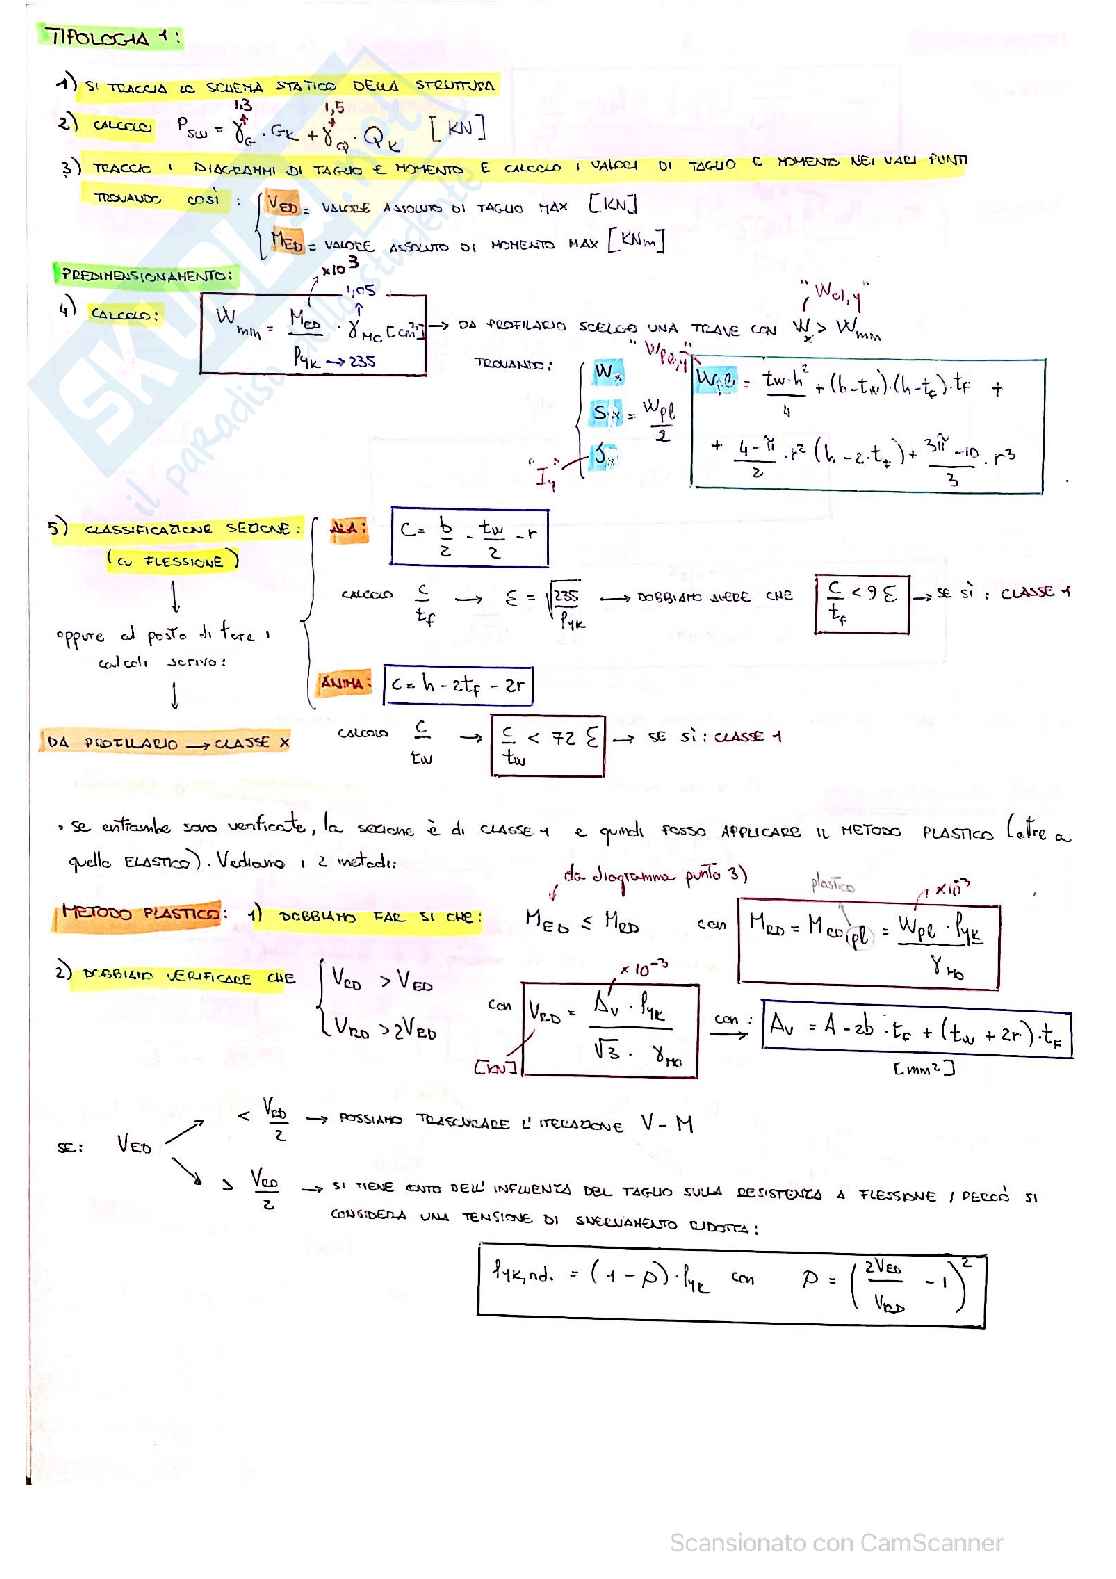 TIPOLOGIA 1:
1) SI TRACCIA LO SCHEMA STATICO DELLA STRUTTURA
1,3 1,5
2) CALCOLO: P_SLU = γ_G · G_K + γ_Q · Q_K [KN]
3) TRACCIO I DIAGRAMMI DI TAGLIO E MOMENTO E CALCOLO I VALORI DI TAGLIO E MOMENTO NEI VARI PUNTI
TROVANDO COSÌ: { V_ED = VALORE ASSOLUTO DI TAGLIO MAX [KN]
M_ED = VALORE ASSOLUTO DI MOMENTO MAX [KNm]
PREDIMENSIONAMENTO:
×10³
1,05
"Wel,y"
4) CALCOLO: W_min = M_ED / f_yk → 235 · γ_M0 [cm³] → DA PROFILARIO SCELGO UNA TRAVE CON W_x > W_min
"Wpl,y"
TROVANDO: { W_x
S_x = W_pl / 2
J_x
"I_y"
W_pl = tw·h² / 4 + (b-tw)·(h-t_f)·t_f +
+ (4-π) / 2 · r² (h-2·t_f) + (3π-10) / 3 · r³
5) CLASSIFICAZIONE SEZIONE:
(A FLESSIONE)
ALA: C = b/2 - tw/2 - r
CALCOLO c/t_f → ε = √(235/f_yk) → DOBBIAMO AVERE CHE c/t_f < 9 ε → SE SÌ: CLASSE 1
oppure al posto di fare i
calcoli scrivo:
ANIMA: C = h - 2t_f - 2r
DA PROFILARIO → CLASSE X
CALCOLO c/tw → c/tw < 72 ε → SE SÌ: CLASSE 1
• se entrambe sono verificate, la sezione è di CLASSE 1 e quindi POSSO APPLICARE IL METODO PLASTICO (oltre a
quello ELASTICO). Vediamo i 2 metodi:
da diagramma punto 3)
plastico
×10⁻³
METODO PLASTICO: 1) DOBBIAMO FAR SI CHE: M_ED ≤ M_RD con M_RD = M_CD,pl = W_pl · f_yk / γ_M0
2) DOBBIAMO VERIFICARE CHE { V_RD > V_ED
V_RD > 2V_ED
×10⁻³
con V_RD = A_v · f_yk / √3 · γ_M0
[KN]
con: A_v = A - 2b · t_f + (tw + 2r) · t_f
[mm²]
SE: V_ED
< V_RD / 2 → POSSIAMO TRASCURARE L'ITERAZIONE V - M
> V_RD / 2 → SI TIENE CONTO DELL'INFLUENZA DEL TAGLIO SULLA RESISTENZA A FLESSIONE, PERCIÒ SI
CONSIDERA UNA TENSIONE DI SNERVAMENTO RIDOTTA:
f_yk,rid. = (1-ρ) · f_yk con ρ = (2V_ED / V_RD - 1)²
SKUOLA.net
il paradiso dello studente
Scansionato con CamScanner